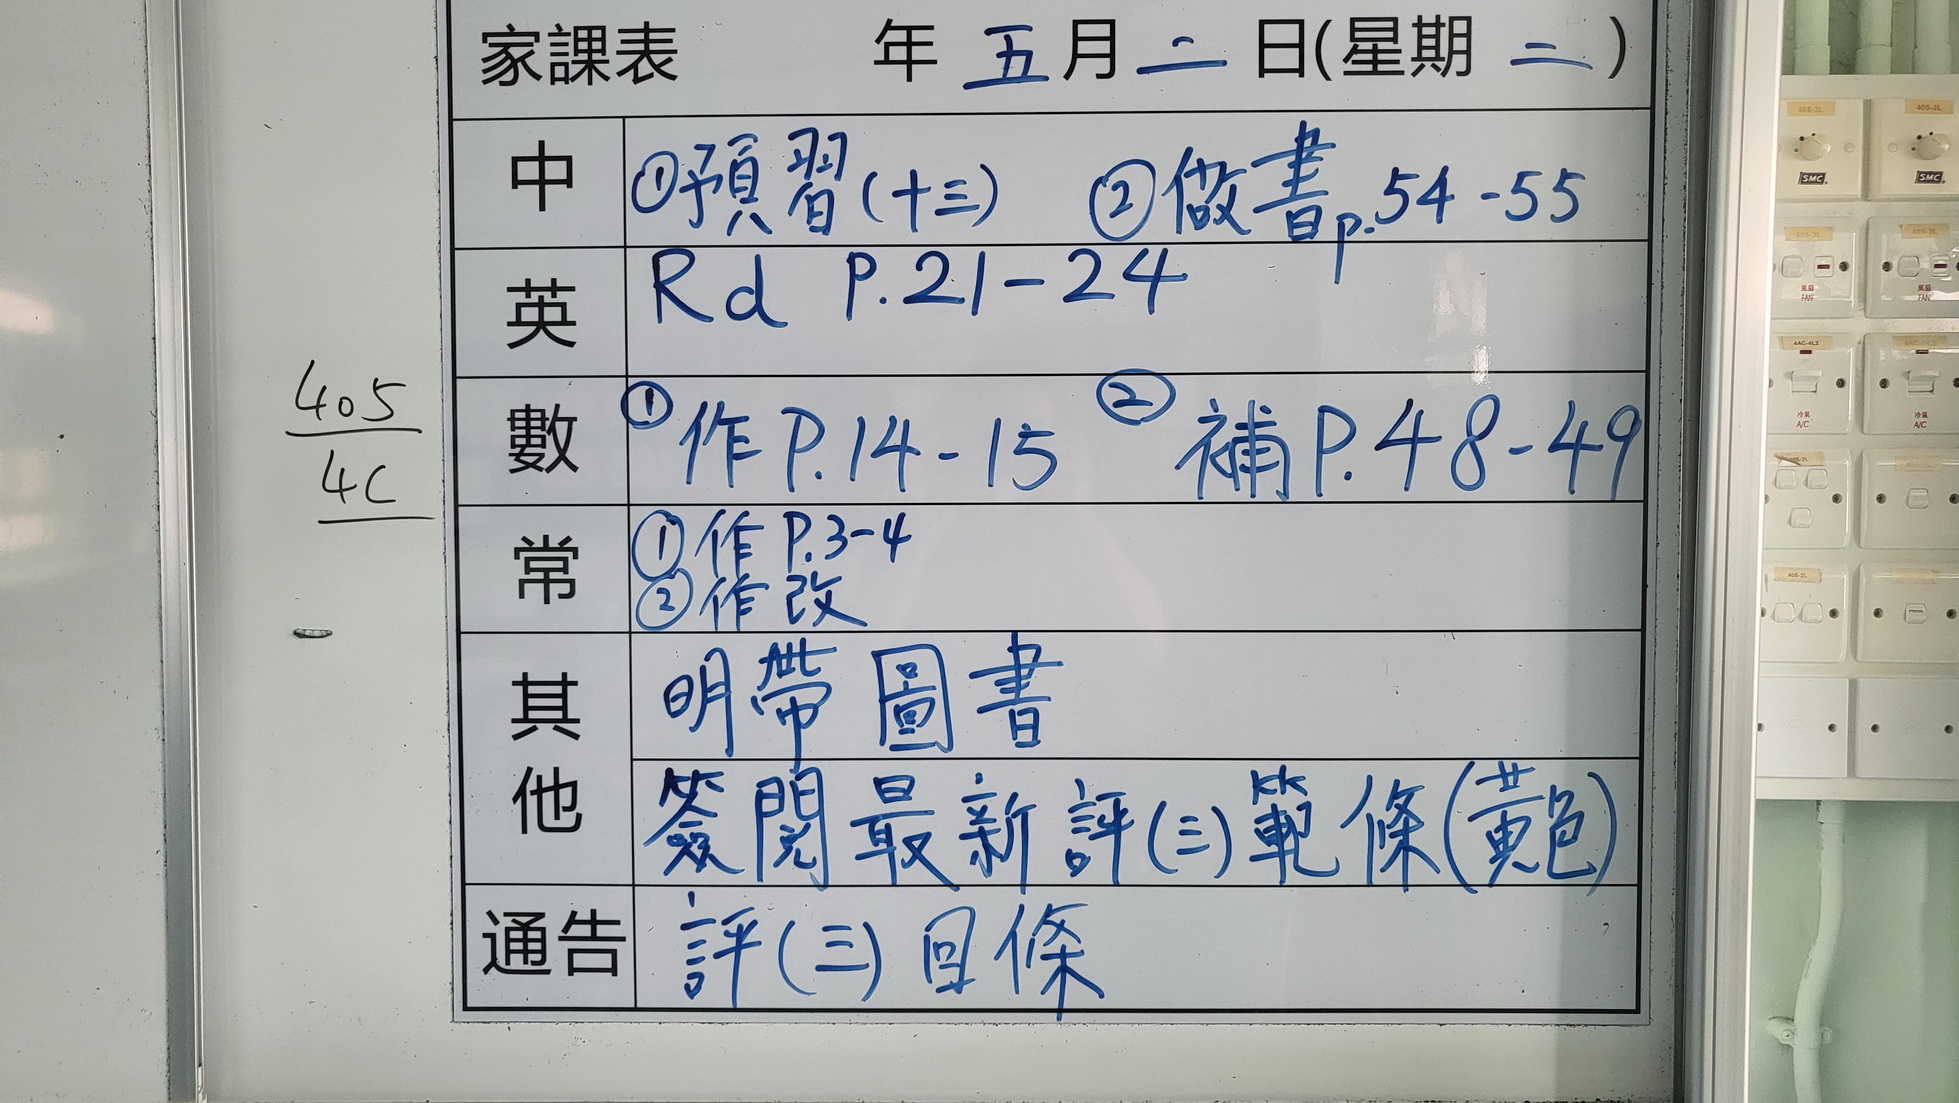 家課表 年 五 月 二 日(星期 二 )
中 ①預習(十三) ②做書p.54-55
英 Rd P.21-24
數 ①作P.14-15 ②補P.48-49
常 ①作P.3-4
②作改
其他 明帶圖書
簽閱最新評(三)範條(黃色)
通告 評(三)回條
405
4C
405-2L
405-3L
SMC
SMC
風扇
FAN
風扇
FAN
4AC-4L2
冷氣
A/C
冷氣
A/C
405-2L